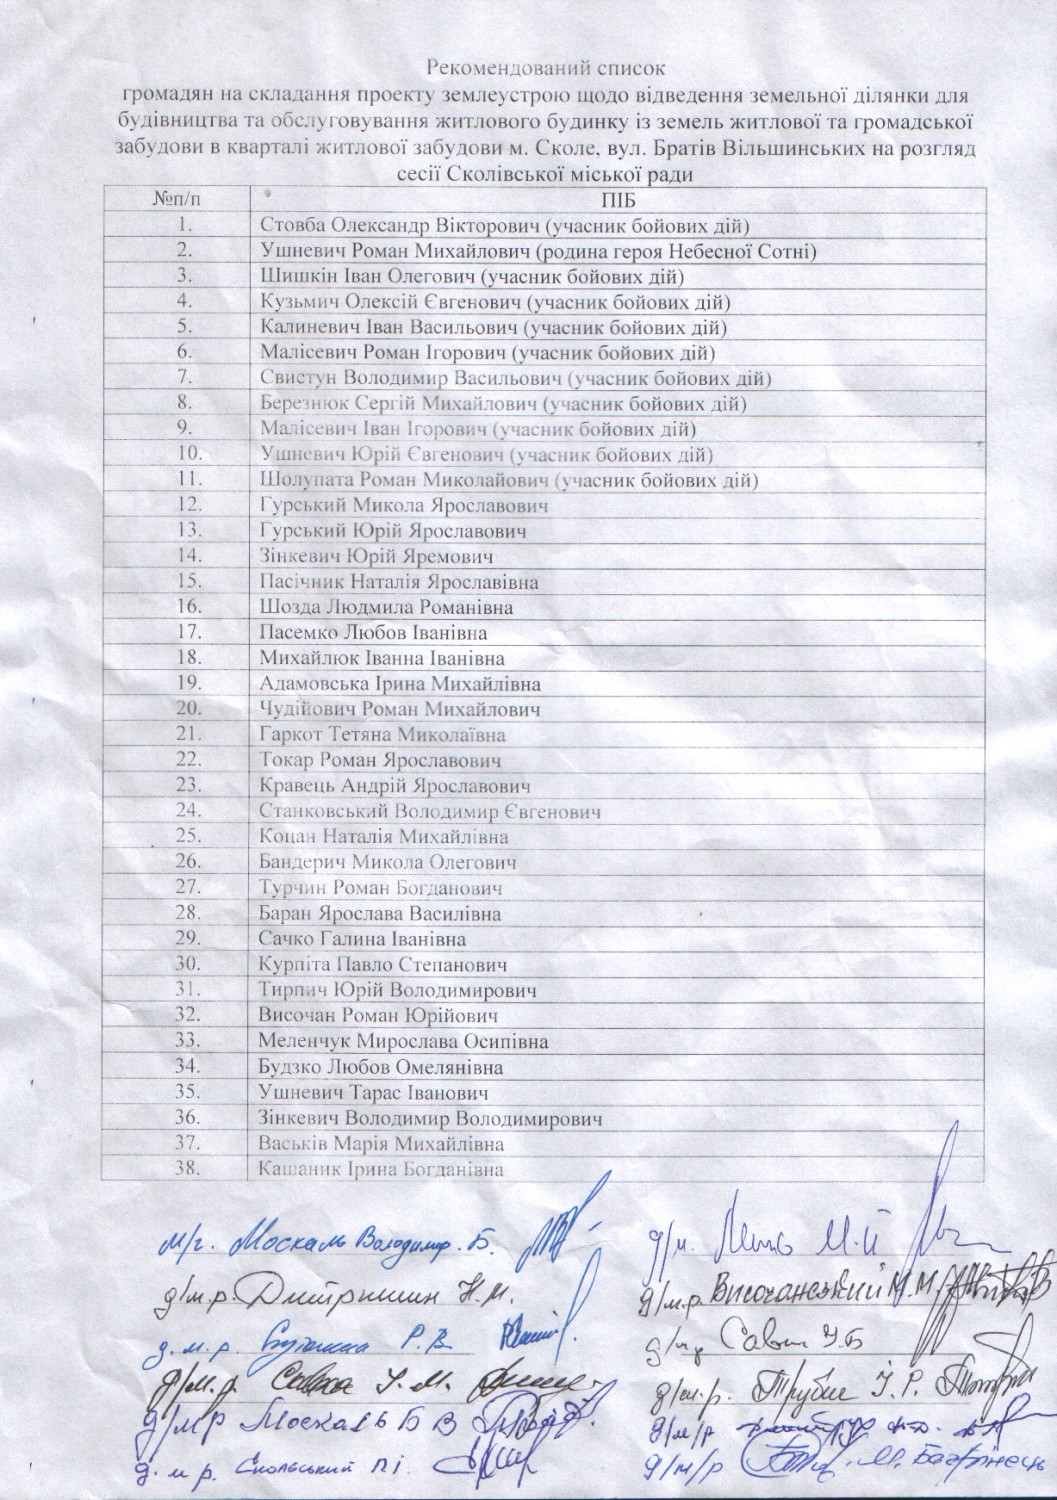 Рекомендований список
громадян на складання проекту землеустрою щодо відведення земельної ділянки для
будівництва та обслуговування житлового будинку із земель житлової та громадської
забудови в кварталі житлової забудови м. Сколе, вул. Братів Вільшинських на розгляд
сесії Сколівської міської ради
№п/п ПІБ
1. Стовба Олександр Вікторович (учасник бойових дій)
2. Ушневич Роман Михайлович (родина героя Небесної Сотні)
3. Шишкін Іван Олегович (учасник бойових дій)
4. Кузьмич Олексій Євгенович (учасник бойових дій)
5. Калиневич Іван Васильович (учасник бойових дій)
6. Малісевич Роман Ігорович (учасник бойових дій)
7. Свистун Володимир Васильович (учасник бойових дій)
8. Березнюк Сергій Михайлович (учасник бойових дій)
9. Малісевич Іван Ігорович (учасник бойових дій)
10. Ушневич Юрій Євгенович (учасник бойових дій)
11. Шолупата Роман Миколайович (учасник бойових дій)
12. Гурський Микола Ярославович
13. Гурський Юрій Ярославович
14. Зінкевич Юрій Яремович
15. Пасічник Наталія Ярославівна
16. Шозда Людмила Романівна
17. Пасемко Любов Іванівна
18. Михайлюк Іванна Іванівна
19. Адамовська Ірина Михайлівна
20. Чудійович Роман Михайлович
21. Гаркот Тетяна Миколаївна
22. Токар Роман Ярославович
23. Кравець Андрій Ярославович
24. Станковський Володимир Євгенович
25. Коцан Наталія Михайлівна
26. Бандерич Микола Олегович
27. Турчин Роман Богданович
28. Баран Ярослава Василівна
29. Сачко Галина Іванівна
30. Курпіта Павло Степанович
31. Тирпич Юрій Володимирович
32. Височан Роман Юрійович
33. Меленчук Мирослава Осипівна
34. Будзко Любов Омелянівна
35. Ушневич Тарас Іванович
36. Зінкевич Володимир Володимирович
37. Васьків Марія Михайлівна
38. Кашаник Ірина Богданівна
м/г. Москаль Володимир. Б.
д/м. М.Й
д/м.р. Дмитришин Н.М.
д/м.р. Височанський М.М.
д.м.р. Р.В
д/м.р. Савка І.М.
д/м.р. Трубич І.Р.
д/м р Москаль Б В
д/м/р
д.м р. Скольський П І.
д/м/р М. Багрінець